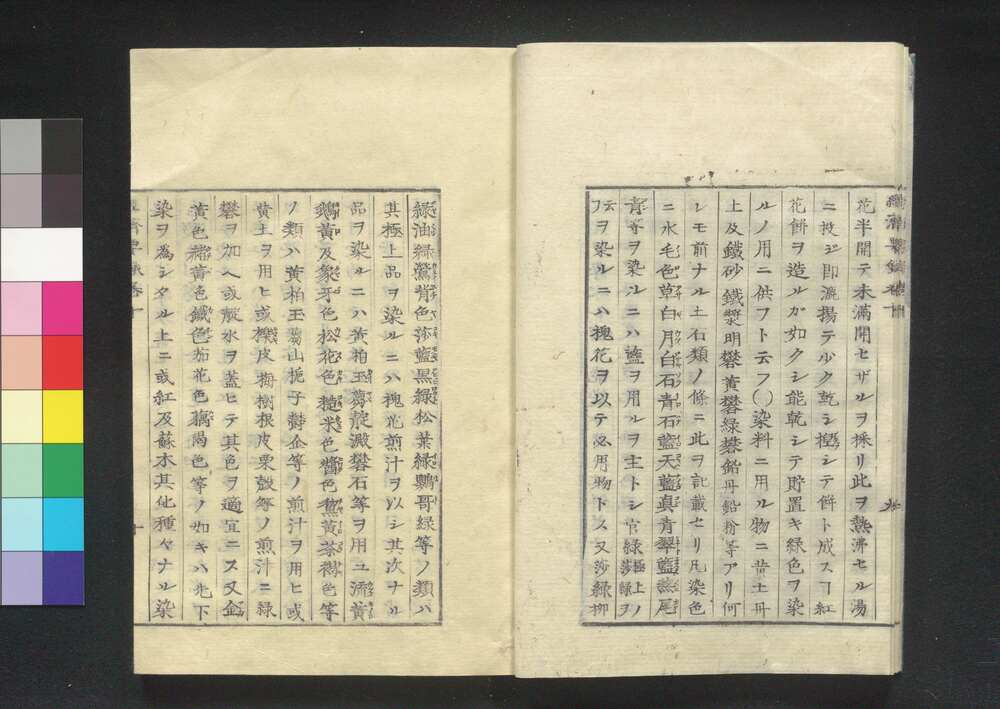 花半開テ未滿開セザルヲ採リ此ヲ熱沸セル湯
ニ投ジ即漉揚テ少ク乾シ摸シテ餅ト成スヿ紅
花餅ヲ造ルガ如クシ能乾シテ貯置キ緑色ヲ染
ルノ用ニ供フト云フ○染料ニ用ル物ニ黄土丹
土及鐵砂鐵漿明礬黄礬緑礬鉛丹鉛粉等アリ何
レモ前ナル土石類ノ條ニ此ヲ記載セリ凡染色
ニ水毛色草白月白石青石藍天藍真青翠藍燕尾
青等ヲ染ルニハ藍ヲ用ルヲ主トシ官緑極上ノ莎緑ヲ
云フヲ染ルニハ槐花ヲ以テ必用物トス又莎緑柳
緑油緑鶯背色莎藍黒緑松葉緑鸚哥緑等ノ類ハ
其極上品ヲ染ルニハ槐花煎汁ヲ以シ其次ナル
品ヲ染ルニハ黄柏玉蒭靛澱礬石等ヲ用ユ流黄
鵝黄及象牙色松花色糙米色醬色黄茶褐色等
ノ類ハ黄柏玉蒭山梔子欝金等ノ煎汁ヲ用ヒ或
黄土ヲ用ヒ或櫟皮梅樹根皮栗殻等ノ煎汁ニ緑
礬ヲ加へ或酸水ヲ蓋ヒテ其色ヲ適宜ニス又金
黄色緇黄色鐵色茄花色藕褐色等ノ如キハ先下
染ヲ為シタル上ニ或紅及蘇木其他種々ナル染